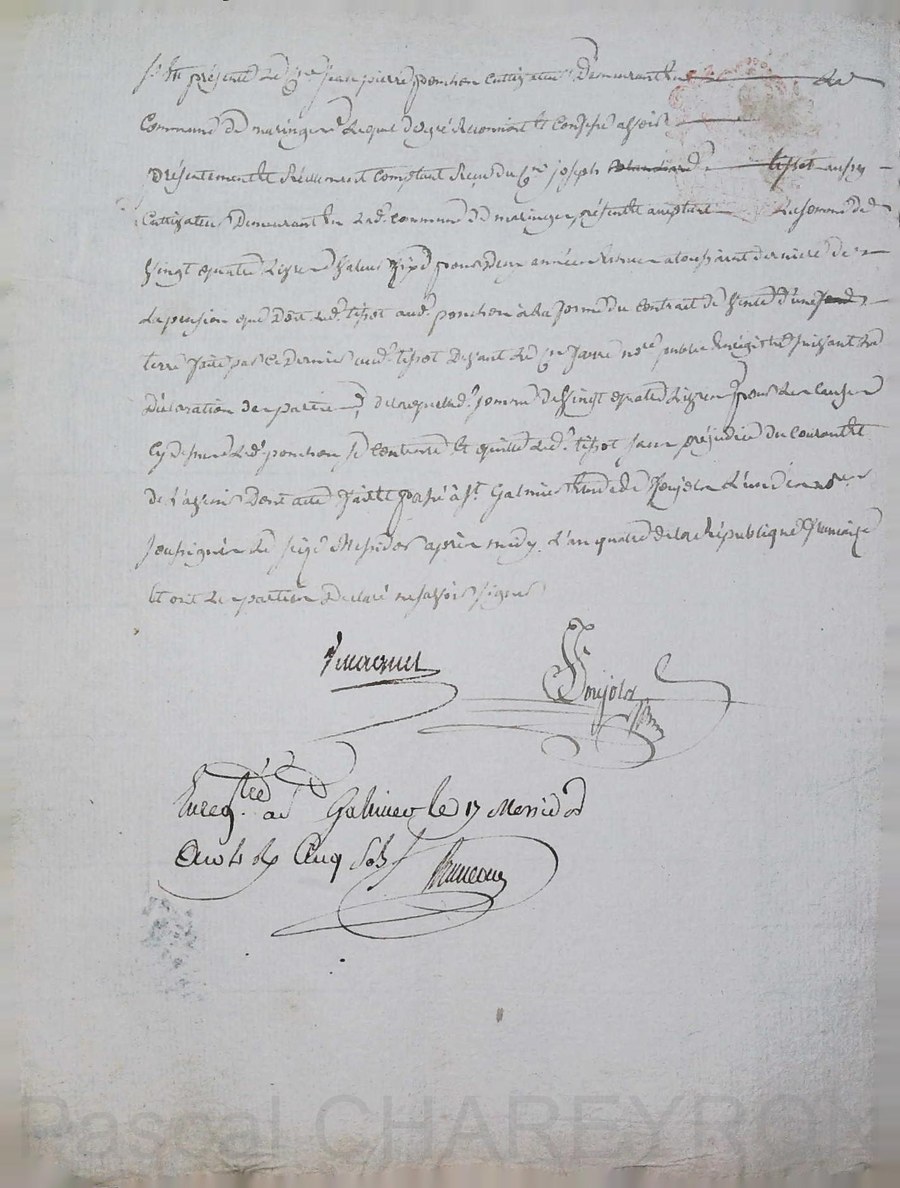 S'est présenté le Cen jean pierre ponchon cultivateur demeurant en la
Commune de maringes lequel de gré reconnoit et confesse avoir
présentement et réellement comptant reçu du Cen joseph tissot aussy
Cultivateur demeurant en lade. commune de maringes, présent et acceptant la somme de
Vingt quatre livres valeur fixe pour deux années échues a toussaint derniere de
la pension que doit led. tissot aud. ponchon à la forme du contrat de vente d'une
terre faite par ce dernier aud. tissot devant le Cen nore. public Enregistré suivant la
déclaration des parties, de laquelle de. somme de Vingt quatre livres pour les causes
cy dessus led. ponchon se contente et quitte led. tissot sans préjudice du courant et
de l'avenir Dont acte fait et passé à St. Galmier Etude de Poujola l'un des nores
soussignés le seize Messidor après midy, l'an quatre de la République française
et ont les parties déclaré ne savoir signer
Poujola
Enregtré. a Galmier le 17 Messidor
an 4 Cinq Sols
Pascal CHAREYRON